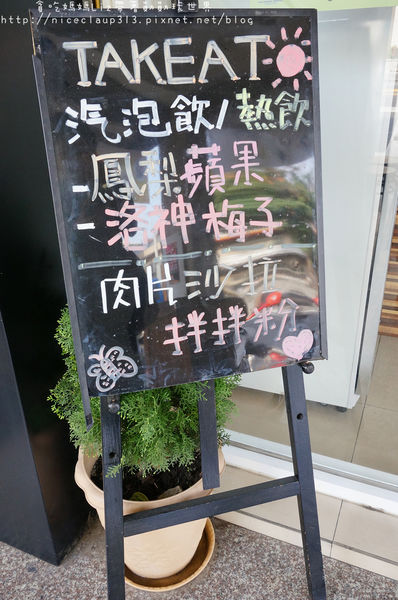 貪吃媽媽
http://niceclaup313.pixnet.net/blog
TAKEAT
汽泡飲/熱飲
-鳳梨蘋果
-洛神梅子
肉片沙拉
拌拌粉